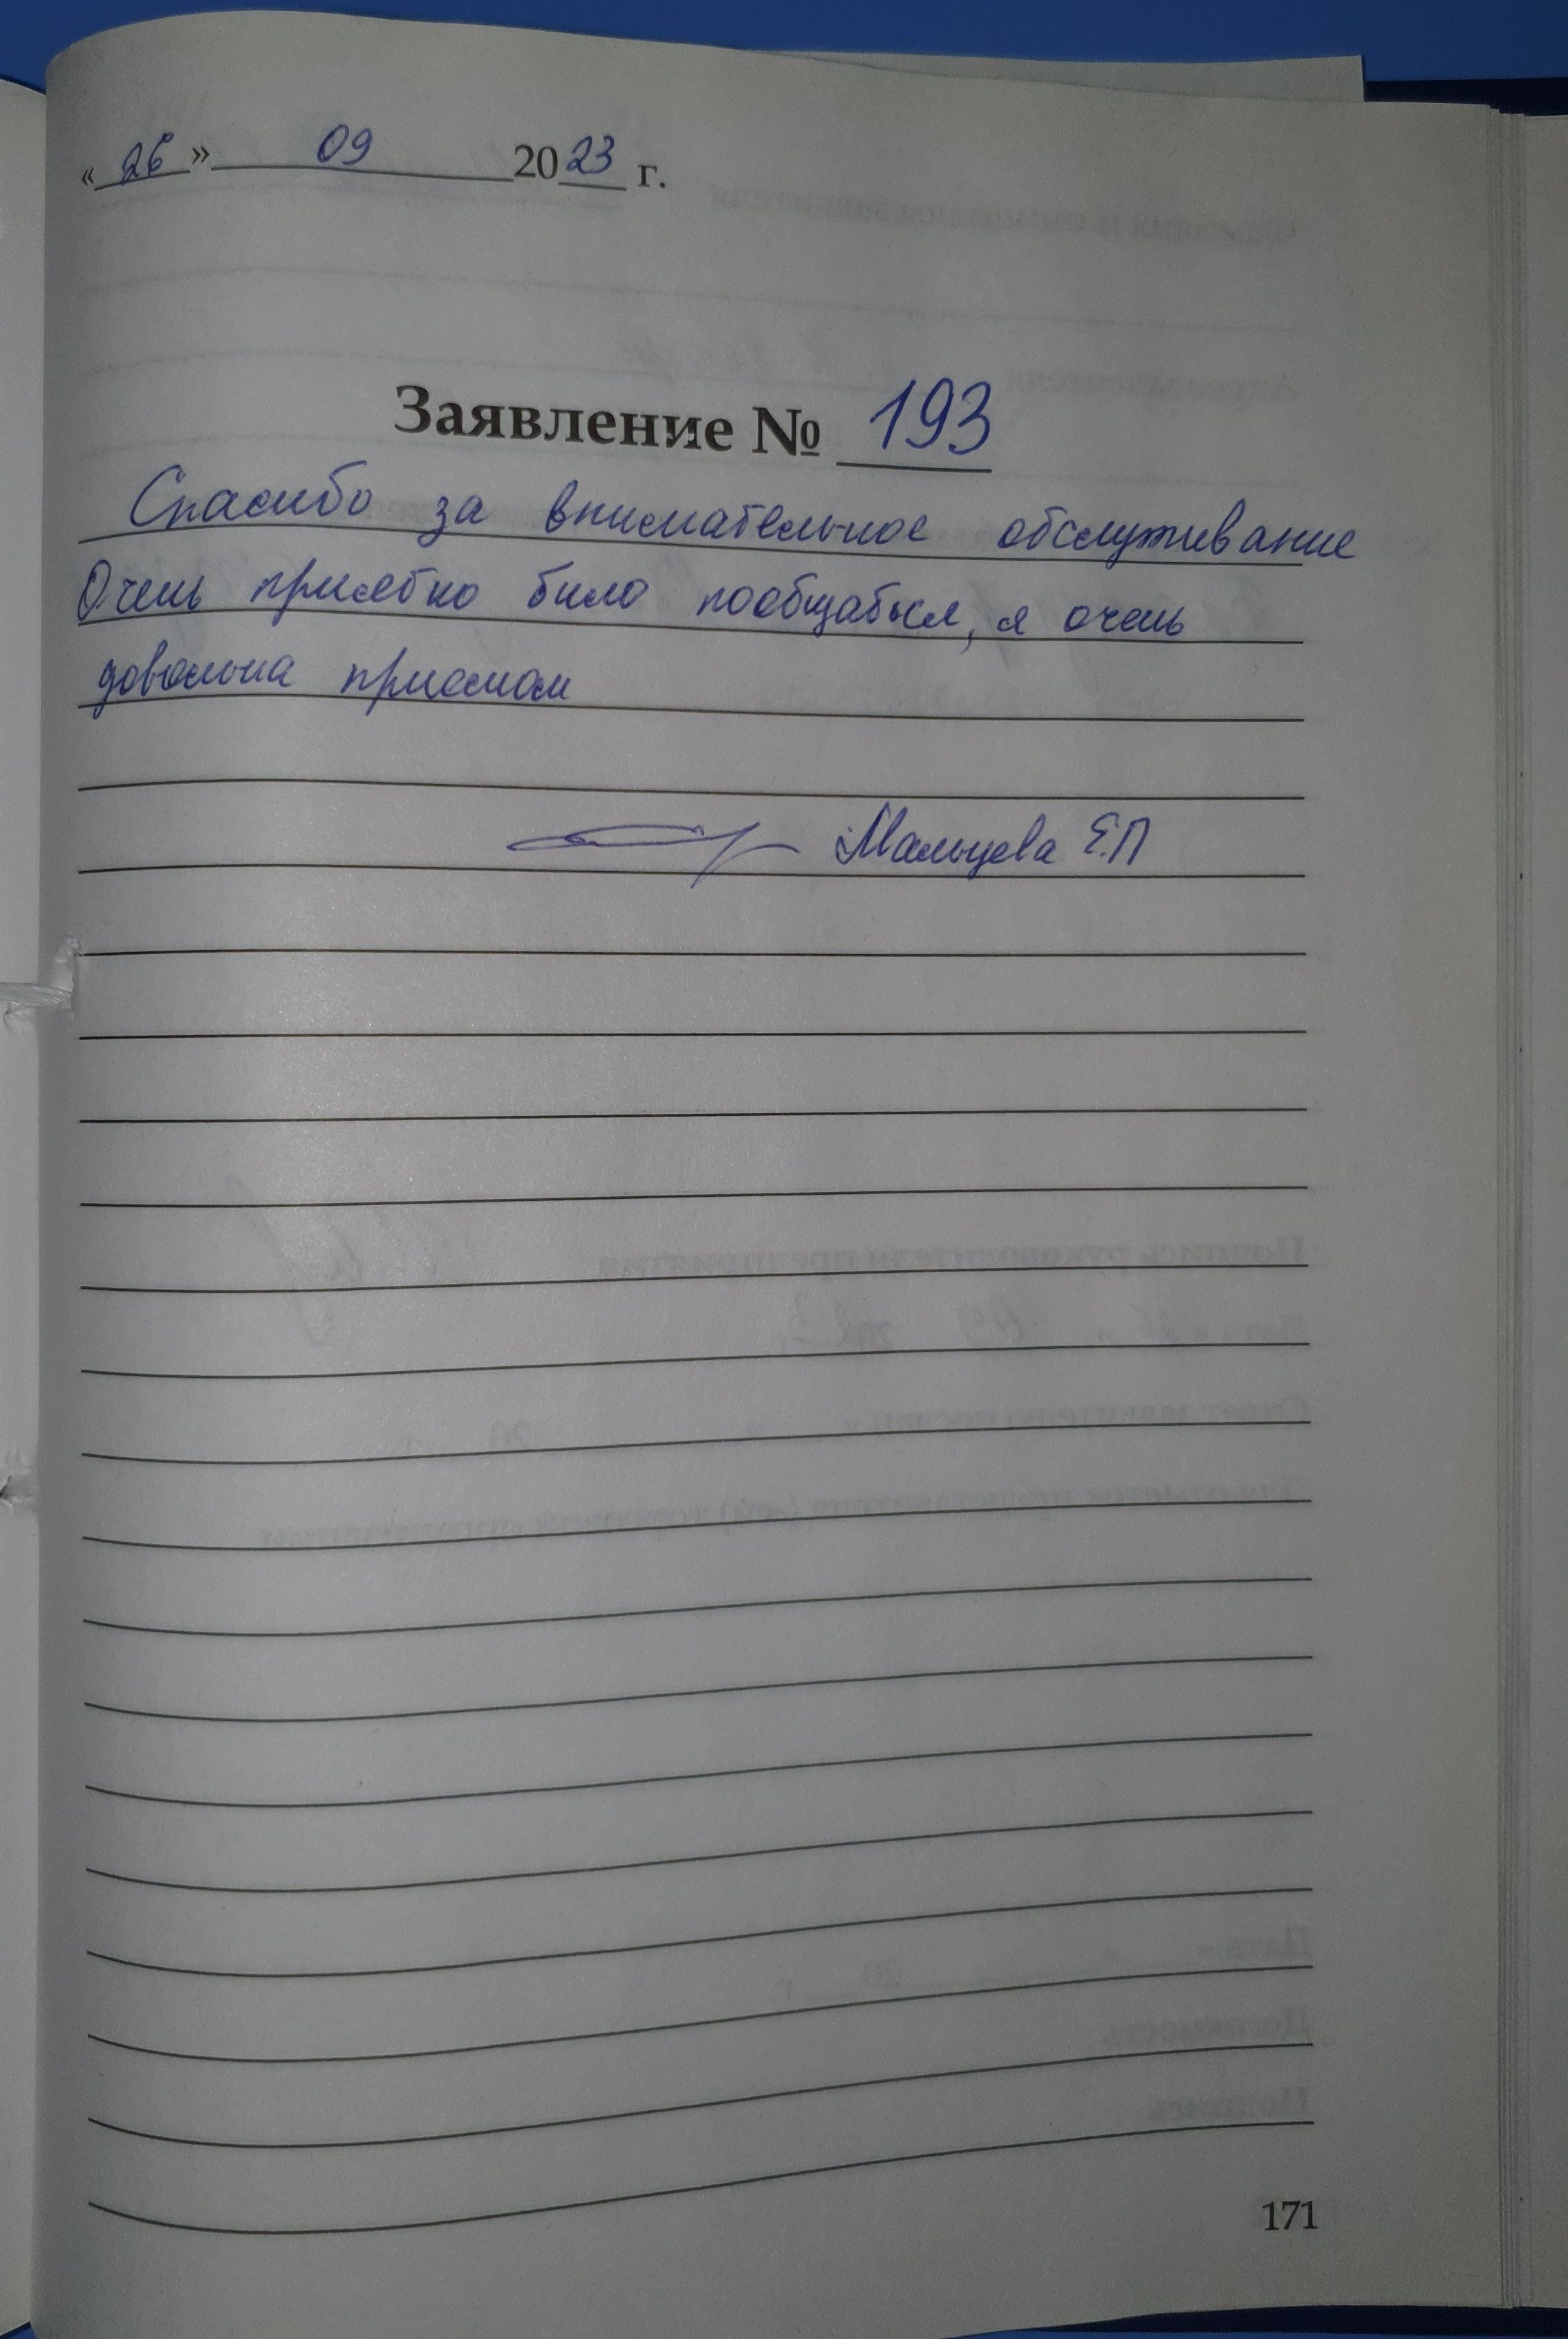 «26» 09 2023 г.
Заявление № 193
Спасибо за внимательное обслуживание
Очень приятно было пообщаться, я очень
довольна приемом
Мальцева Е.П
171